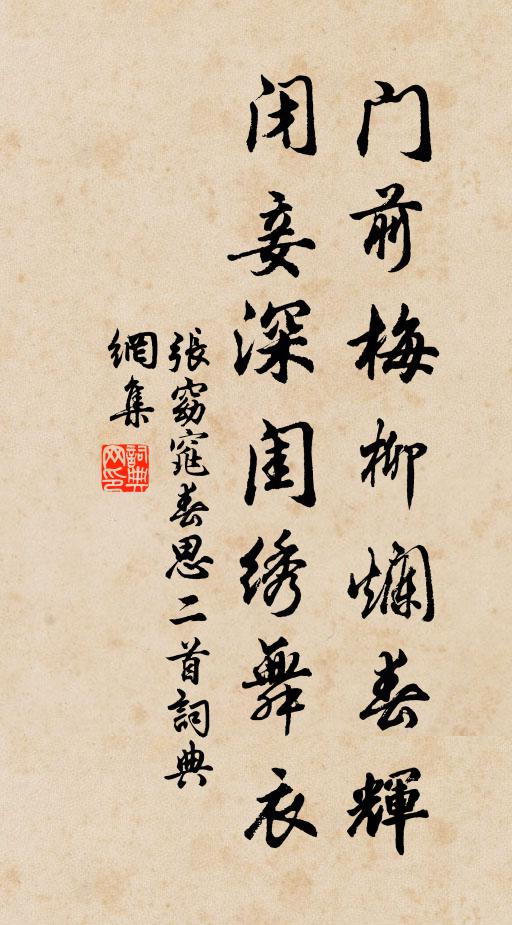 门前梅柳烂春辉
闭妾深闺绣舞衣
張窈窕春思二首詞典
網集
詞典網印